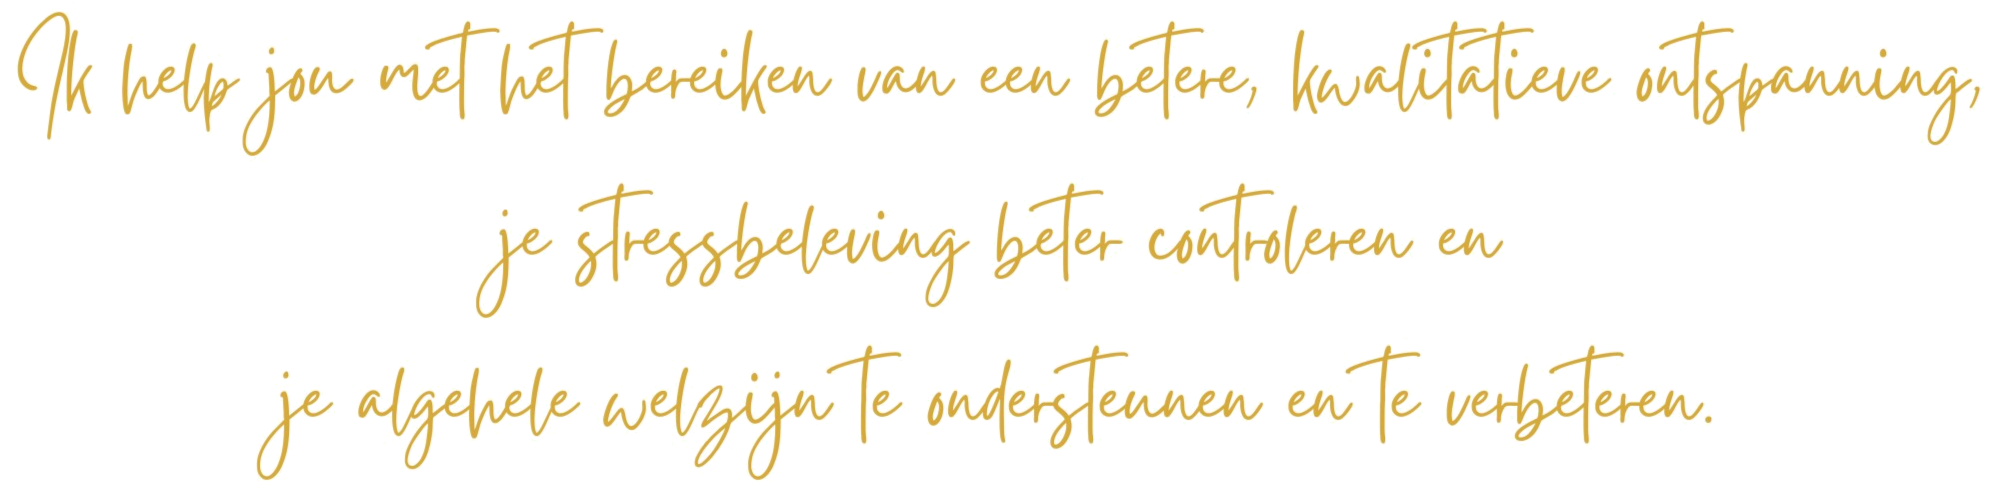 Ik help jou met het bereiken van een betere, kwalitatieve ontspanning,
je stressbeleving beter controleren en
je algehele welzijn te ondersteunen en te verbeteren.